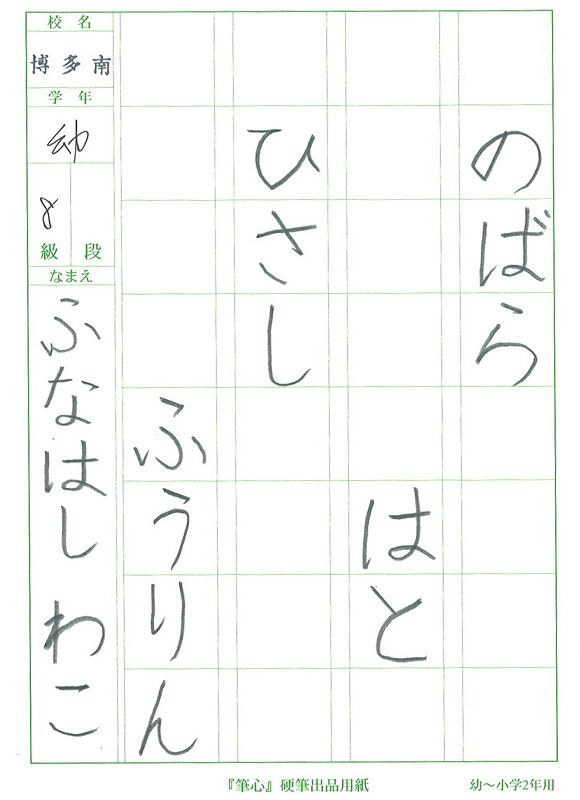 のばら
はと
ひさし
ふうりん
校名
博多南
学年
幼
8
級 段
なまえ
ふなはし わこ
『筆心』硬筆出品用紙
幼～小学2年用